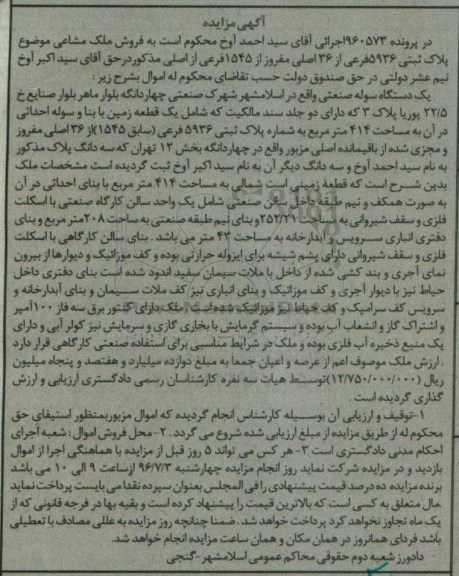 آگهی مزایده
در پرونده ۹۶۰۵۷۳اجرائی آقای سید احمد آوخ محکوم است به فروش ملک مشاعی موضوع
پلاک ثبتی ۵۹۳۶فرعی از ۳۶ اصلی مفروز از ۱۵۴۵فرعی از اصلی مذکوردرحق آقای سید اکبر آوخ
نیم عشر دولتی در حق صندوق دولت حسب تقاضای محکوم له اموال بشرح زیر :
یک دستگاه سوله صنعتی واقع در اسلامشهر شهرک صنعتی چهاردانگه بلوار ماهر بلوار صنایع خ
۲۲/۵ پوریا پلاک ۳ که دارای دو جلد سند مالکیت که شامل یک قطعه زمین با بنا و سوله احداثی
در آن به مساحت ۴۱۴ متر مربع به شماره پلاک ثبتی ۵۹۳۶ فرعی (سابق ۱۵۴۵)از ۳۶ اصلی مفروز
و مجزی شده از باقیمانده اصلی مزبور واقع در چهاردانگه بخش ۱۲ تهران که سه دانگ پلاک مذکور
به نام سید احمد آوخ و سه دانگ دیگر آن به نام سید اکبر آوخ ثبت گردیده است مشخصات ملک
بدین شرح است که قطعه زمینی است شمالی به مساحت ۴۱۴ متر مربع با بنای احداثی در آن
به صورت همکف و نیم طبقه داخل سالن صنعتی شامل یک واحد سالن کارگاه صنعتی با اسکلت
فلزی و سقف شیروانی به مساحت ۲۵۲/۲۱و بنای نیم طبقه صنعتی به ساحت ۲۰۸متر مربع و بنای
دفتری انباری سرویس و آبدارخانه به مساحت ۴۳ متر می باشد . بنای سالن کارگاهی با اسکلت
فلزی و سقف شیروانی دارای پشم شیشه برای ایزوله حرارتی بوده و کف موزائیک و دیوارها از بیرون
نمای آجری و بند کشی شده از داخل با ملات سیمان سفید اندود شده است بنای دفتری داخل
حیاط نیز با دیوار آجری و کف موزائیک و بنای انباری نیز کف ملات سیمان و بنای آبدارخانه و
سرویس کف سرامیک و کف حیاط نیز موزائیک شده است. ملک دارای کنتور برق سه فاز ۱۰۰آمپر
و اشتراک گاز و انشعاب آب بوده و سیستم گرمایش با بخاری گازی و سرمایش نیز کولر آبی و دارای
یک منبع ذخیره آب فلزی بوده و ملک در شرایط مناسبی برای استفاده صنعتی کارگاهی قرار دارد
. ارزش ملک موصوف اعم از عرصه و اعیان جمعا به مبلغ دوازده میلیارد و هفتصد و پنجاه میلیون
ریال (۱۲/۷۵۰/۰۰۰/۰۰۰)توسط هیات سه نفره کارشناسان رسمی دادگستری ارزیابی و ارزش
گذاری گردیده است .
۱-توقیف و ارزیابی آن بوسیله کارشناس انجام گردیده که اموال مزبوربمنظور استیفای حق
محکوم له از طریق مزایده از مبلغ ارزیابی شده شروع می گردد . ۲- محل فروش اموال : شعبه اجرای
احکام مدنی دادگستری است ۳- هر کس می تواند ۵ روز قبل از مزایده با هماهنگی اجرا از اموال
بازدید و در مزایده شرکت نماید روز انجام مزایده چهارشنبه ۹۶/۷/۳ ازساعت ۹ الی ۱۰ می باشد
برنده مزایده ده درصد قیمت پیشنهادی رافی المجلس بعنوان سپرده نقدا می بایست پرداخت نماید
.مال متعلق به کسی است که بالاترین قیمت را پیشنهاد کرده است و بقیه بها در فرجه قانونی که از
یک ماه تجاوز نخواهد کرد پرداخت خواهد شد . ضمنا چنانچه روز مزایده به عللی مصادف با تعطیلی
باشد فردای همانروز در همان مکان و همان ساعت مزایده انجام خواهد شد.
دادورز شعبه دوم حقوقی محاکم عمومی اسلامشهر -گنجی